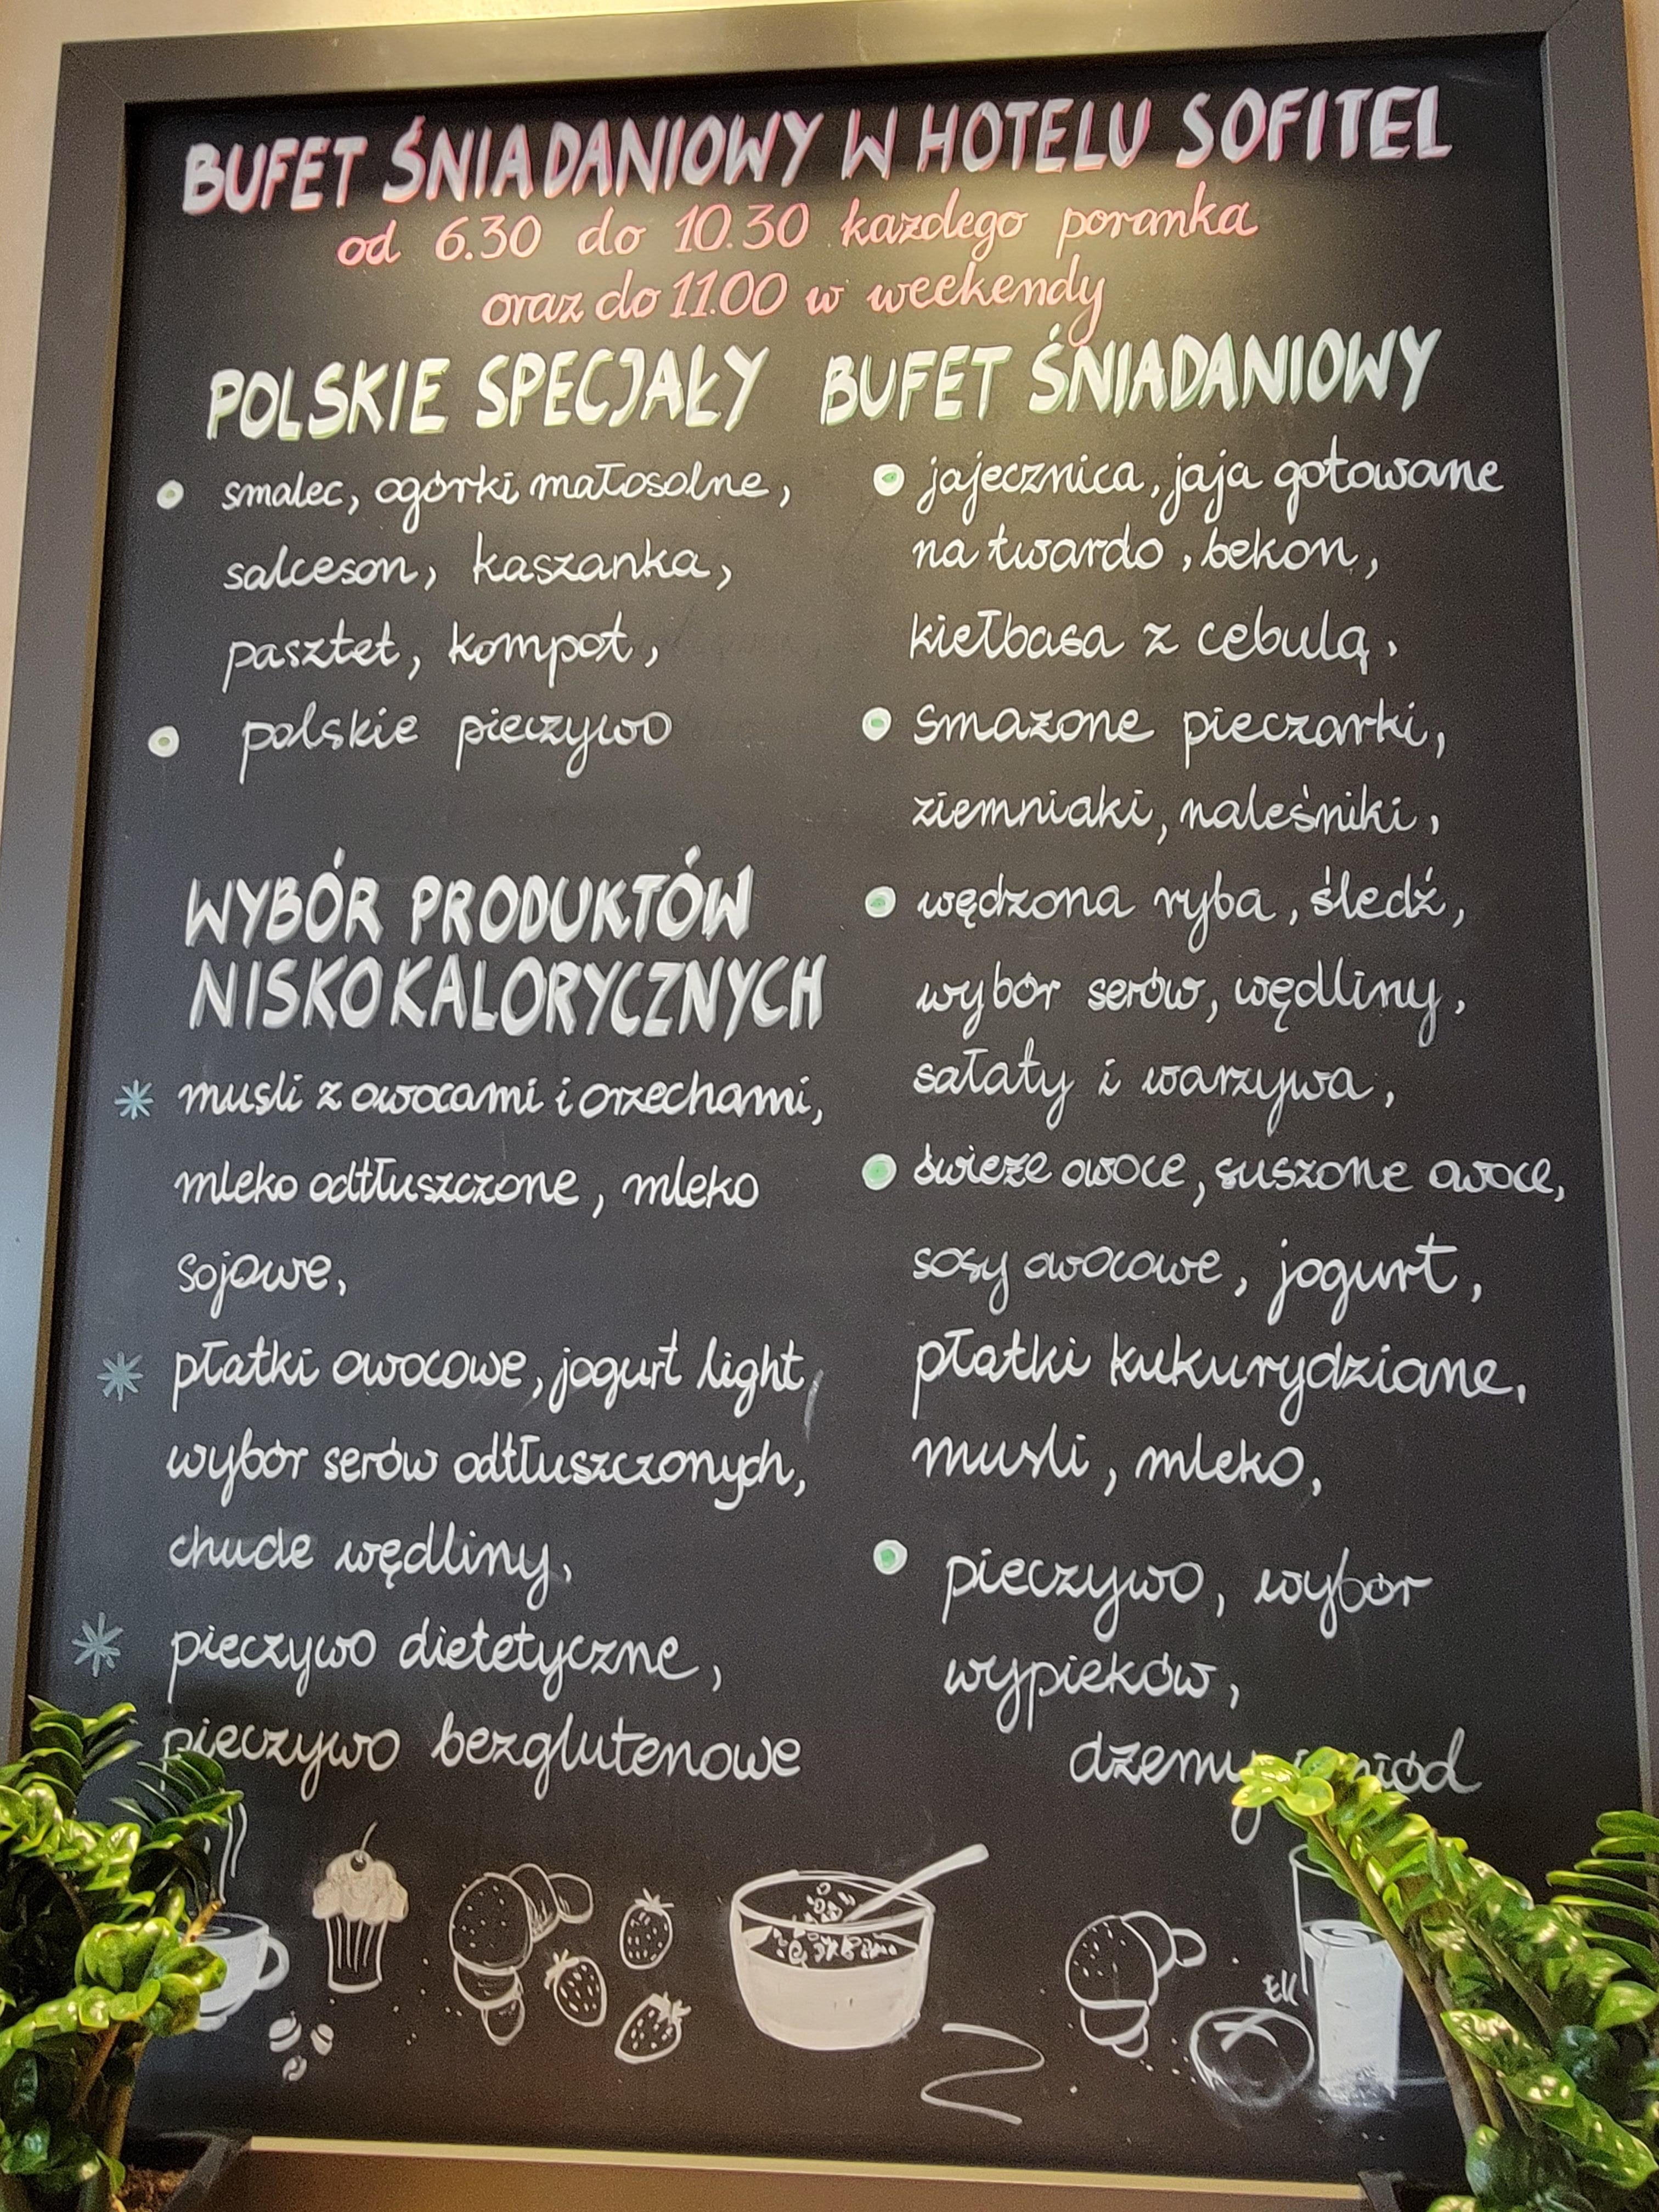 BUFET ŚNIADANIOWY W HOTELU SOFITEL
od 6.30 do 10.30 każdego poranka
oraz do 11.00 w weekendy
POLSKIE SPECJAŁY
smalec, ogórki małosolne,
salceson, kaszanka,
pasztet, kompot,
polskie pieczywo
WYBÓR PRODUKTÓW
NISKOKALORYCZNYCH
musli z owocami i orzechami,
mleko odtłuszczone, mleko
sojowe,
płatki owocowe, jogurt light,
wybór serów odtłuszczonych,
chude wędliny,
pieczywo dietetyczne,
pieczywo bezglutenowe
BUFET ŚNIADANIOWY
jajecznica, jaja gotowane
na twardo, bekon,
kiełbasa z cebulą,
smażone pieczarki,
ziemniaki, naleśniki,
wędzona ryba, śledź,
wybór serów, wędliny,
sałaty i warzywa,
świeże owoce, suszone owoce,
sosy owocowe, jogurt,
płatki kukurydziane,
musli, mleko,
pieczywo, wybór
wypieków,
dżemy miód
EK